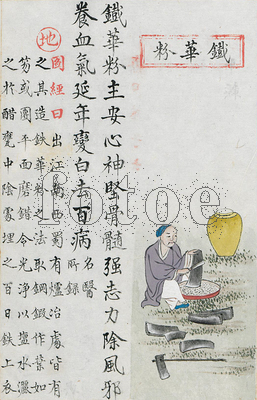 鐵華粉
鐵華粉主安心神堅骨髓強志力除風邪
養血氣延年變白去百病 名醫所錄
地
圖經曰出江南西蜀有爐冶處皆有
之其造鉄華粉之法取鋼鍛作葉如
笏或團平面磨錯令光淨以鹽水灑
之於醋甕中陰處埋之百日鉄上衣
fotoe